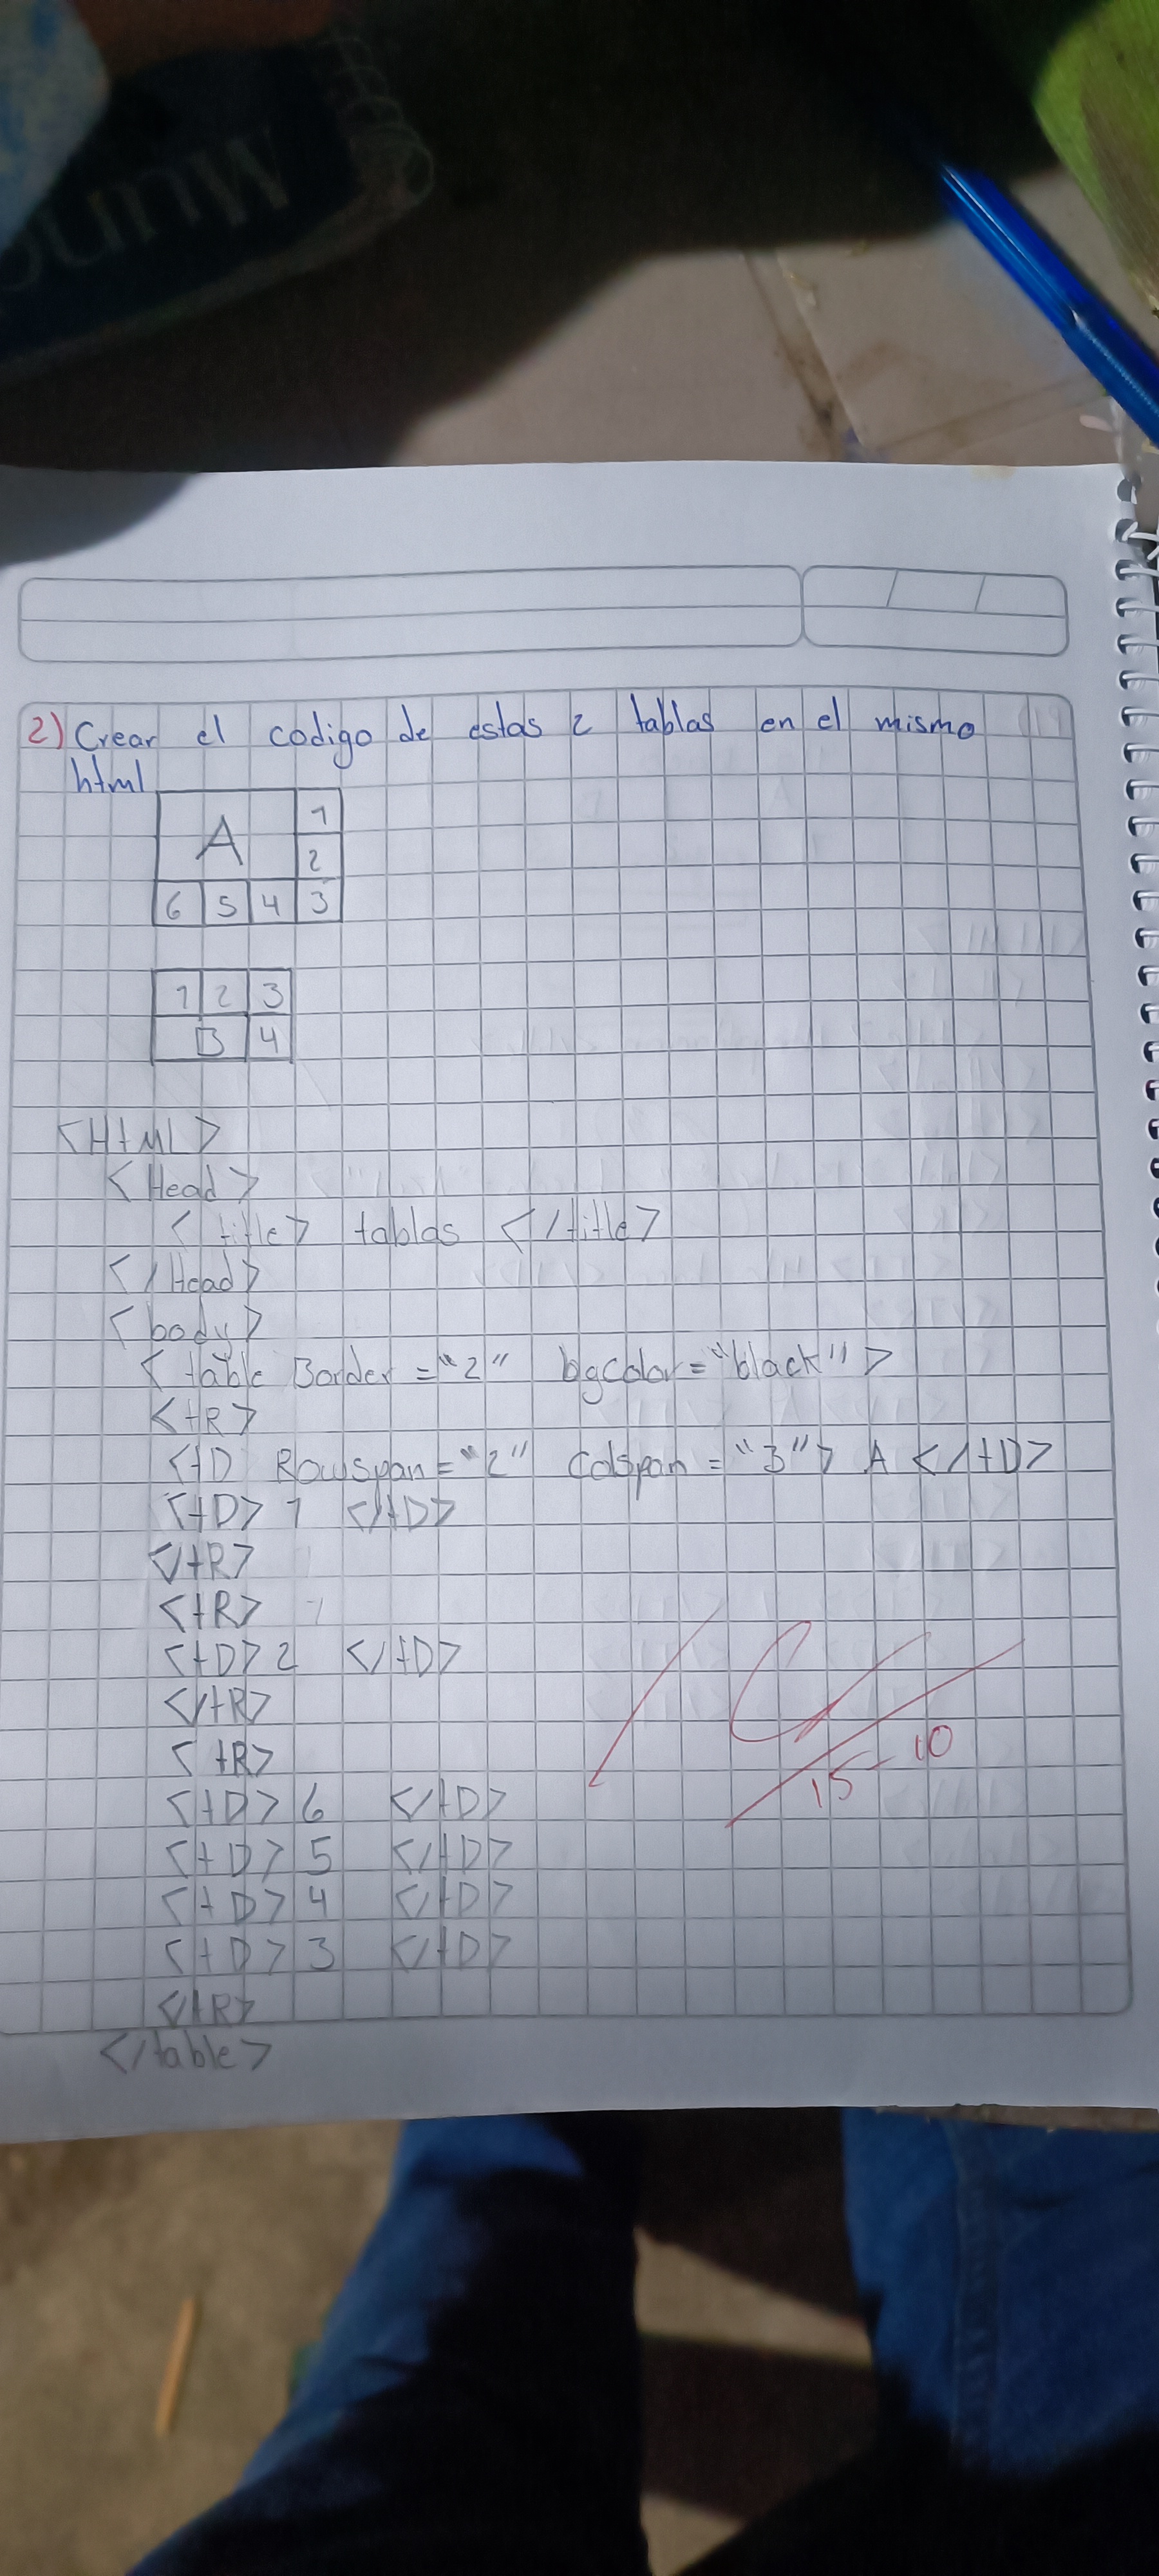 2) Crear el codigo de estas 2 tablas en el mismo
html
A 1
2
6 5 4 3
1 2 3
B 4
<HtML>
<Head>
<title> tablas </title>
</Head>
<body>
<table Border="2" bgcolor="black">
<tR>
<tD Rowspan="2" Colspan="3"> A </tD>
<tD> 1 </tD>
</tR>
<tR>
<tD> 2 </tD>
</tR>
<tR>
<tD> 6 </tD>
<tD> 5 </tD>
<tD> 4 </tD>
<tD> 3 </tD>
</tR>
</table>
15-10